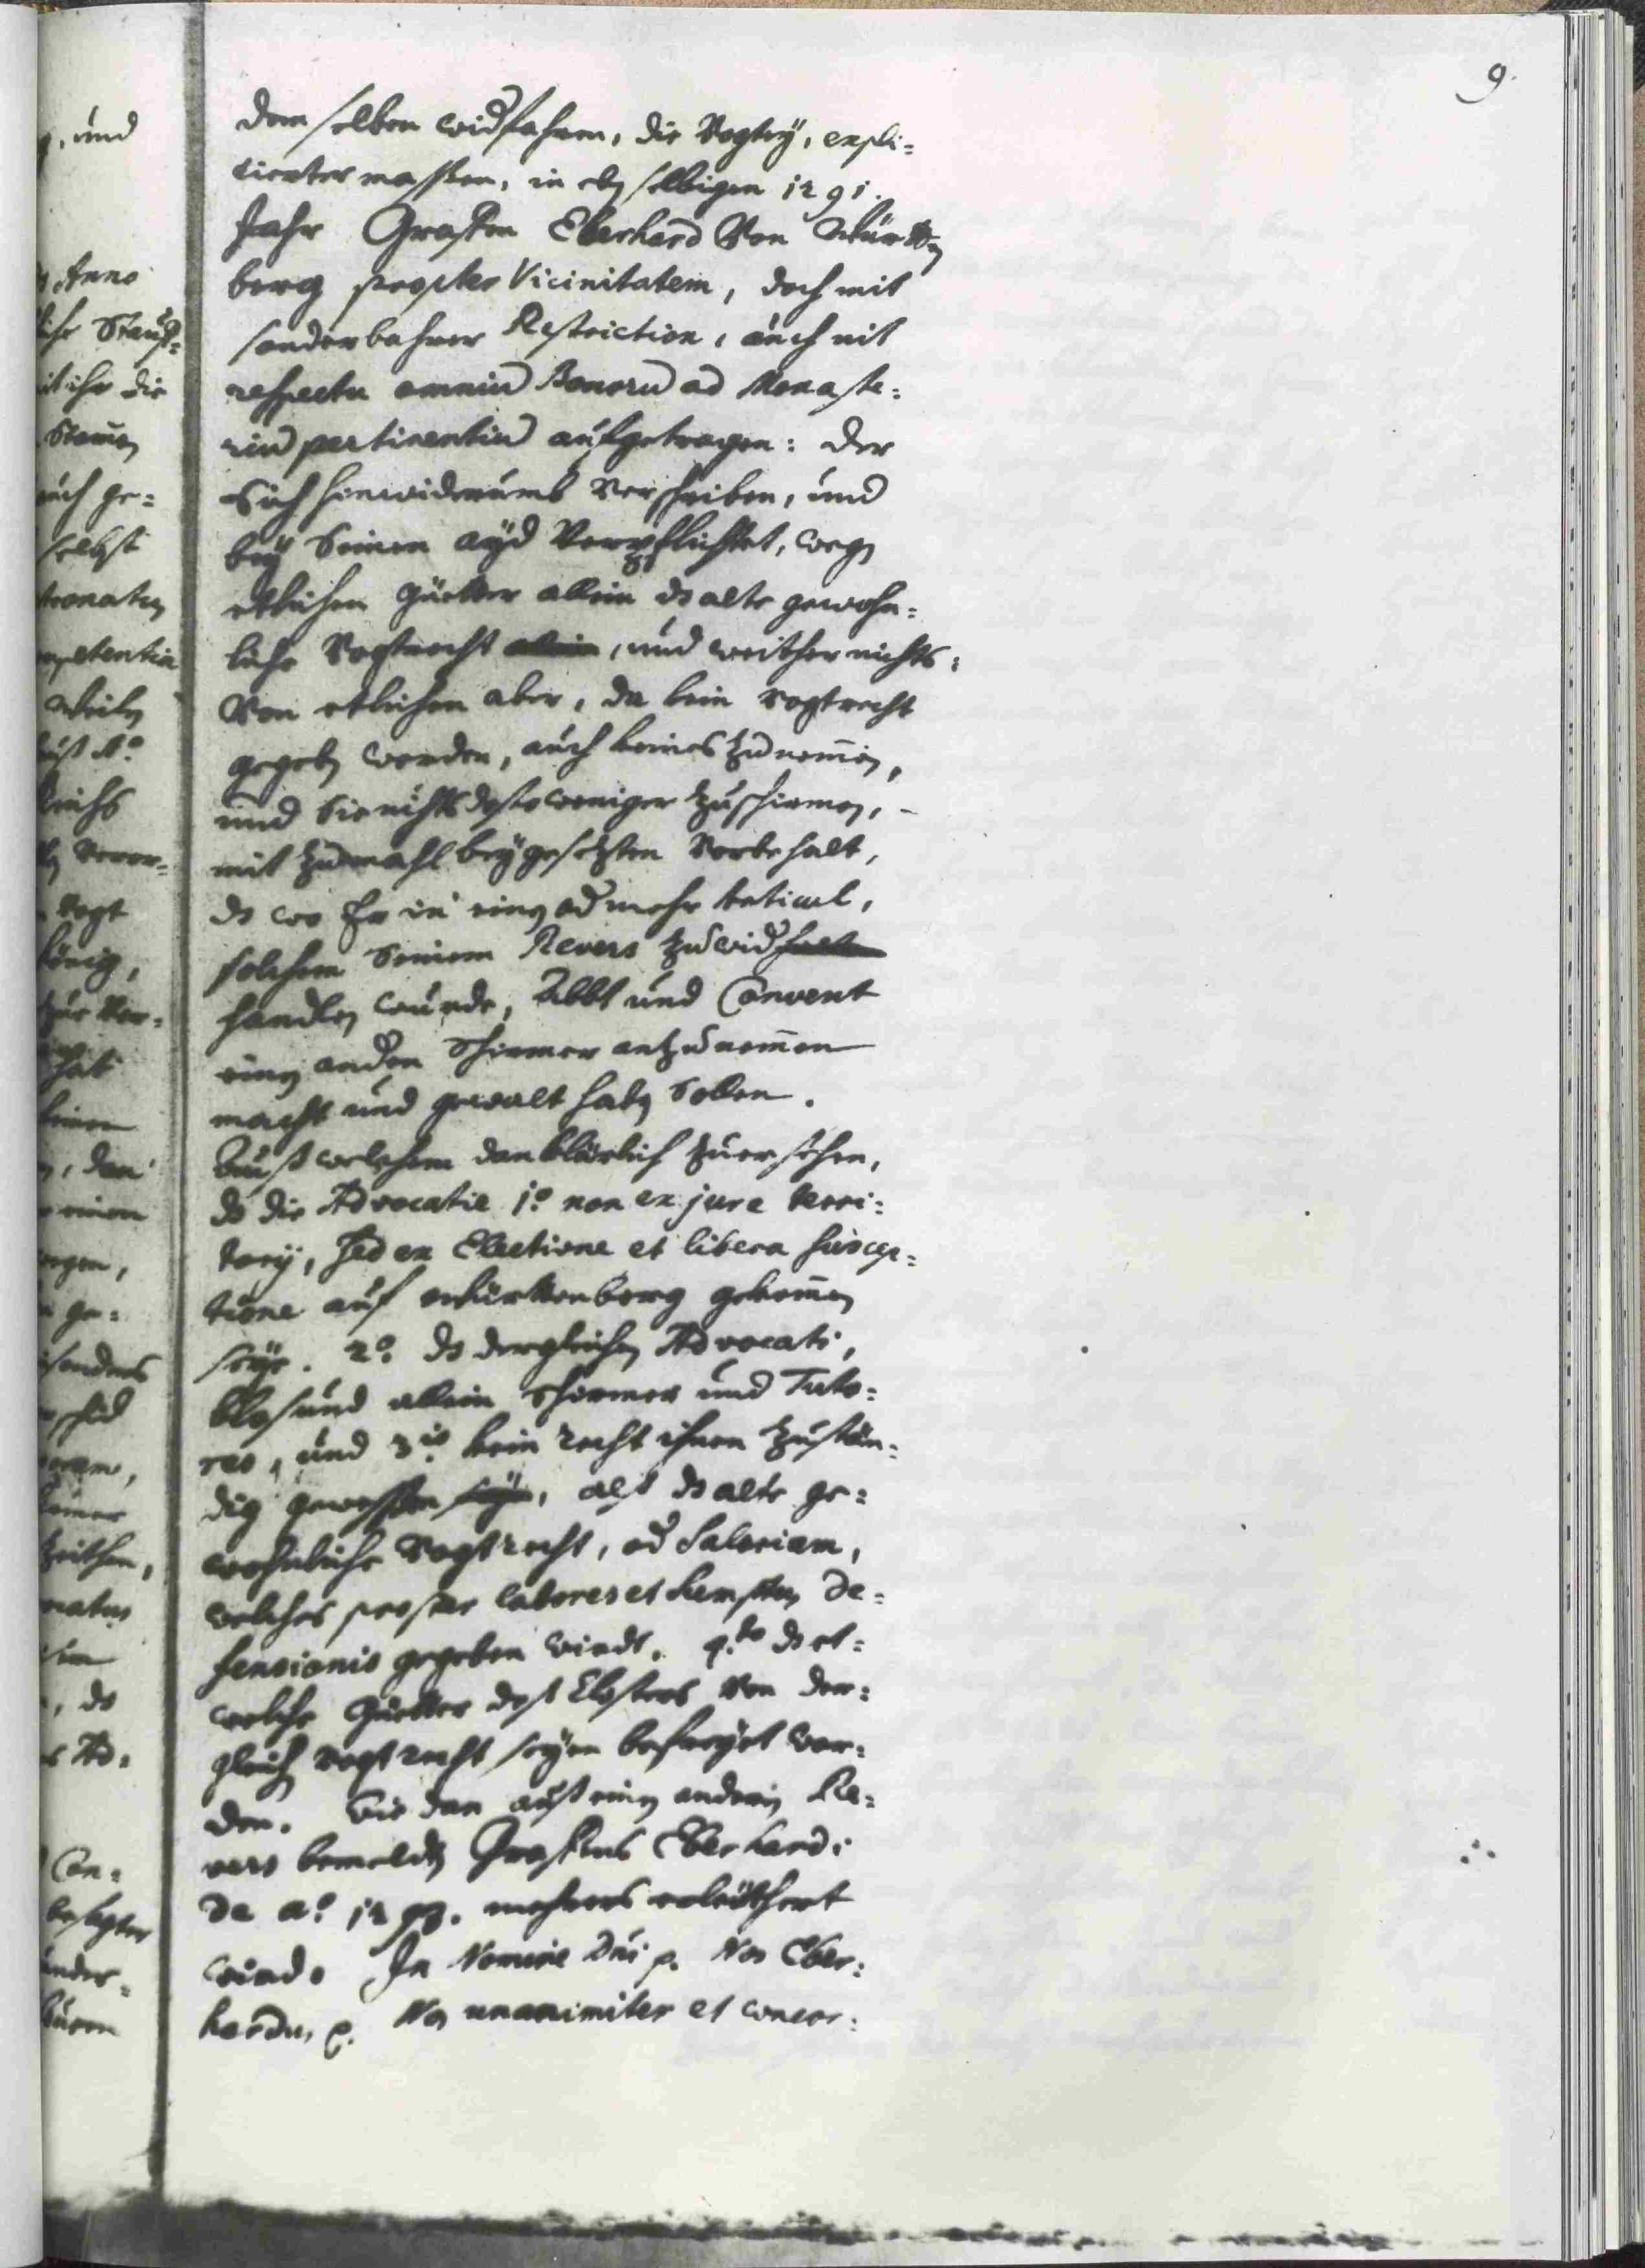 9.
dem selben widfahren, die Vogtey, expli=
cierter massen, in eben selbigen 1291.
Jahr Graffen Eberhard Von Württen
berg propter Vicinitatem, doch mit
sonderbahrer Restriction, auch nit
respectu omniu Bonoru ad Monaste:
riu pertinentiu aufgetragen: der
Sich hinwiderumb verschriben, und
bey Seinen ayd Verpflichtet, wegen
etlichen Güetter allein ds alte gewohn=
liche Vogtrecht allein, und weither nichts:
Von etlichen aber, da kein vogtrecht
gegeben worden, auch keines zunemen,
und Sie nichts desto weniger zuschirmen,
mit zumahl beygesetzten Vorbehalt,
ds wo Er in einen od mehr Articul,
solchem Seinem Revers zuwid
handlen wurde, Abbt und Convent
einen andern Schirmer anzunemmen
macht und gewalt haben Sollen.
Auß welchem dan klärlich zuersehen,
ds die Advocatie 1º non ex jure terri:
torij, Sed ex Electione et libera suscep=
tione auf Württenberg gekommen
seye. 2º. ds dergleichen Advocati,
blos und allein Schirmer und Tuto=
res, und 3io kein recht ihnen zustän=
dig gewessen seye, alß ds alte ge=
wohnliche Vogtrecht, od Salarium,
welches propter labores et sumptus De=
fensionis gegeben wirdt. 4.to ds et=
welche Güetter deß Closters von der=
gleichen vogtrecht seyen befreyet wor=
den. Wie dan auß einen andern Re=
vers bemeldten Graffens Eberhardi
de aº. 1293. mehrers erleüthert
wird. In Nomine Dni p. Nos Eber:
hardus p. Nos unanimiter et concor:
und
Anno
Stauf=
ihr die
Stamen
auch ge=
selbst
Vogt
hat
einen
dan
ge:
ds
Ad=
Con=